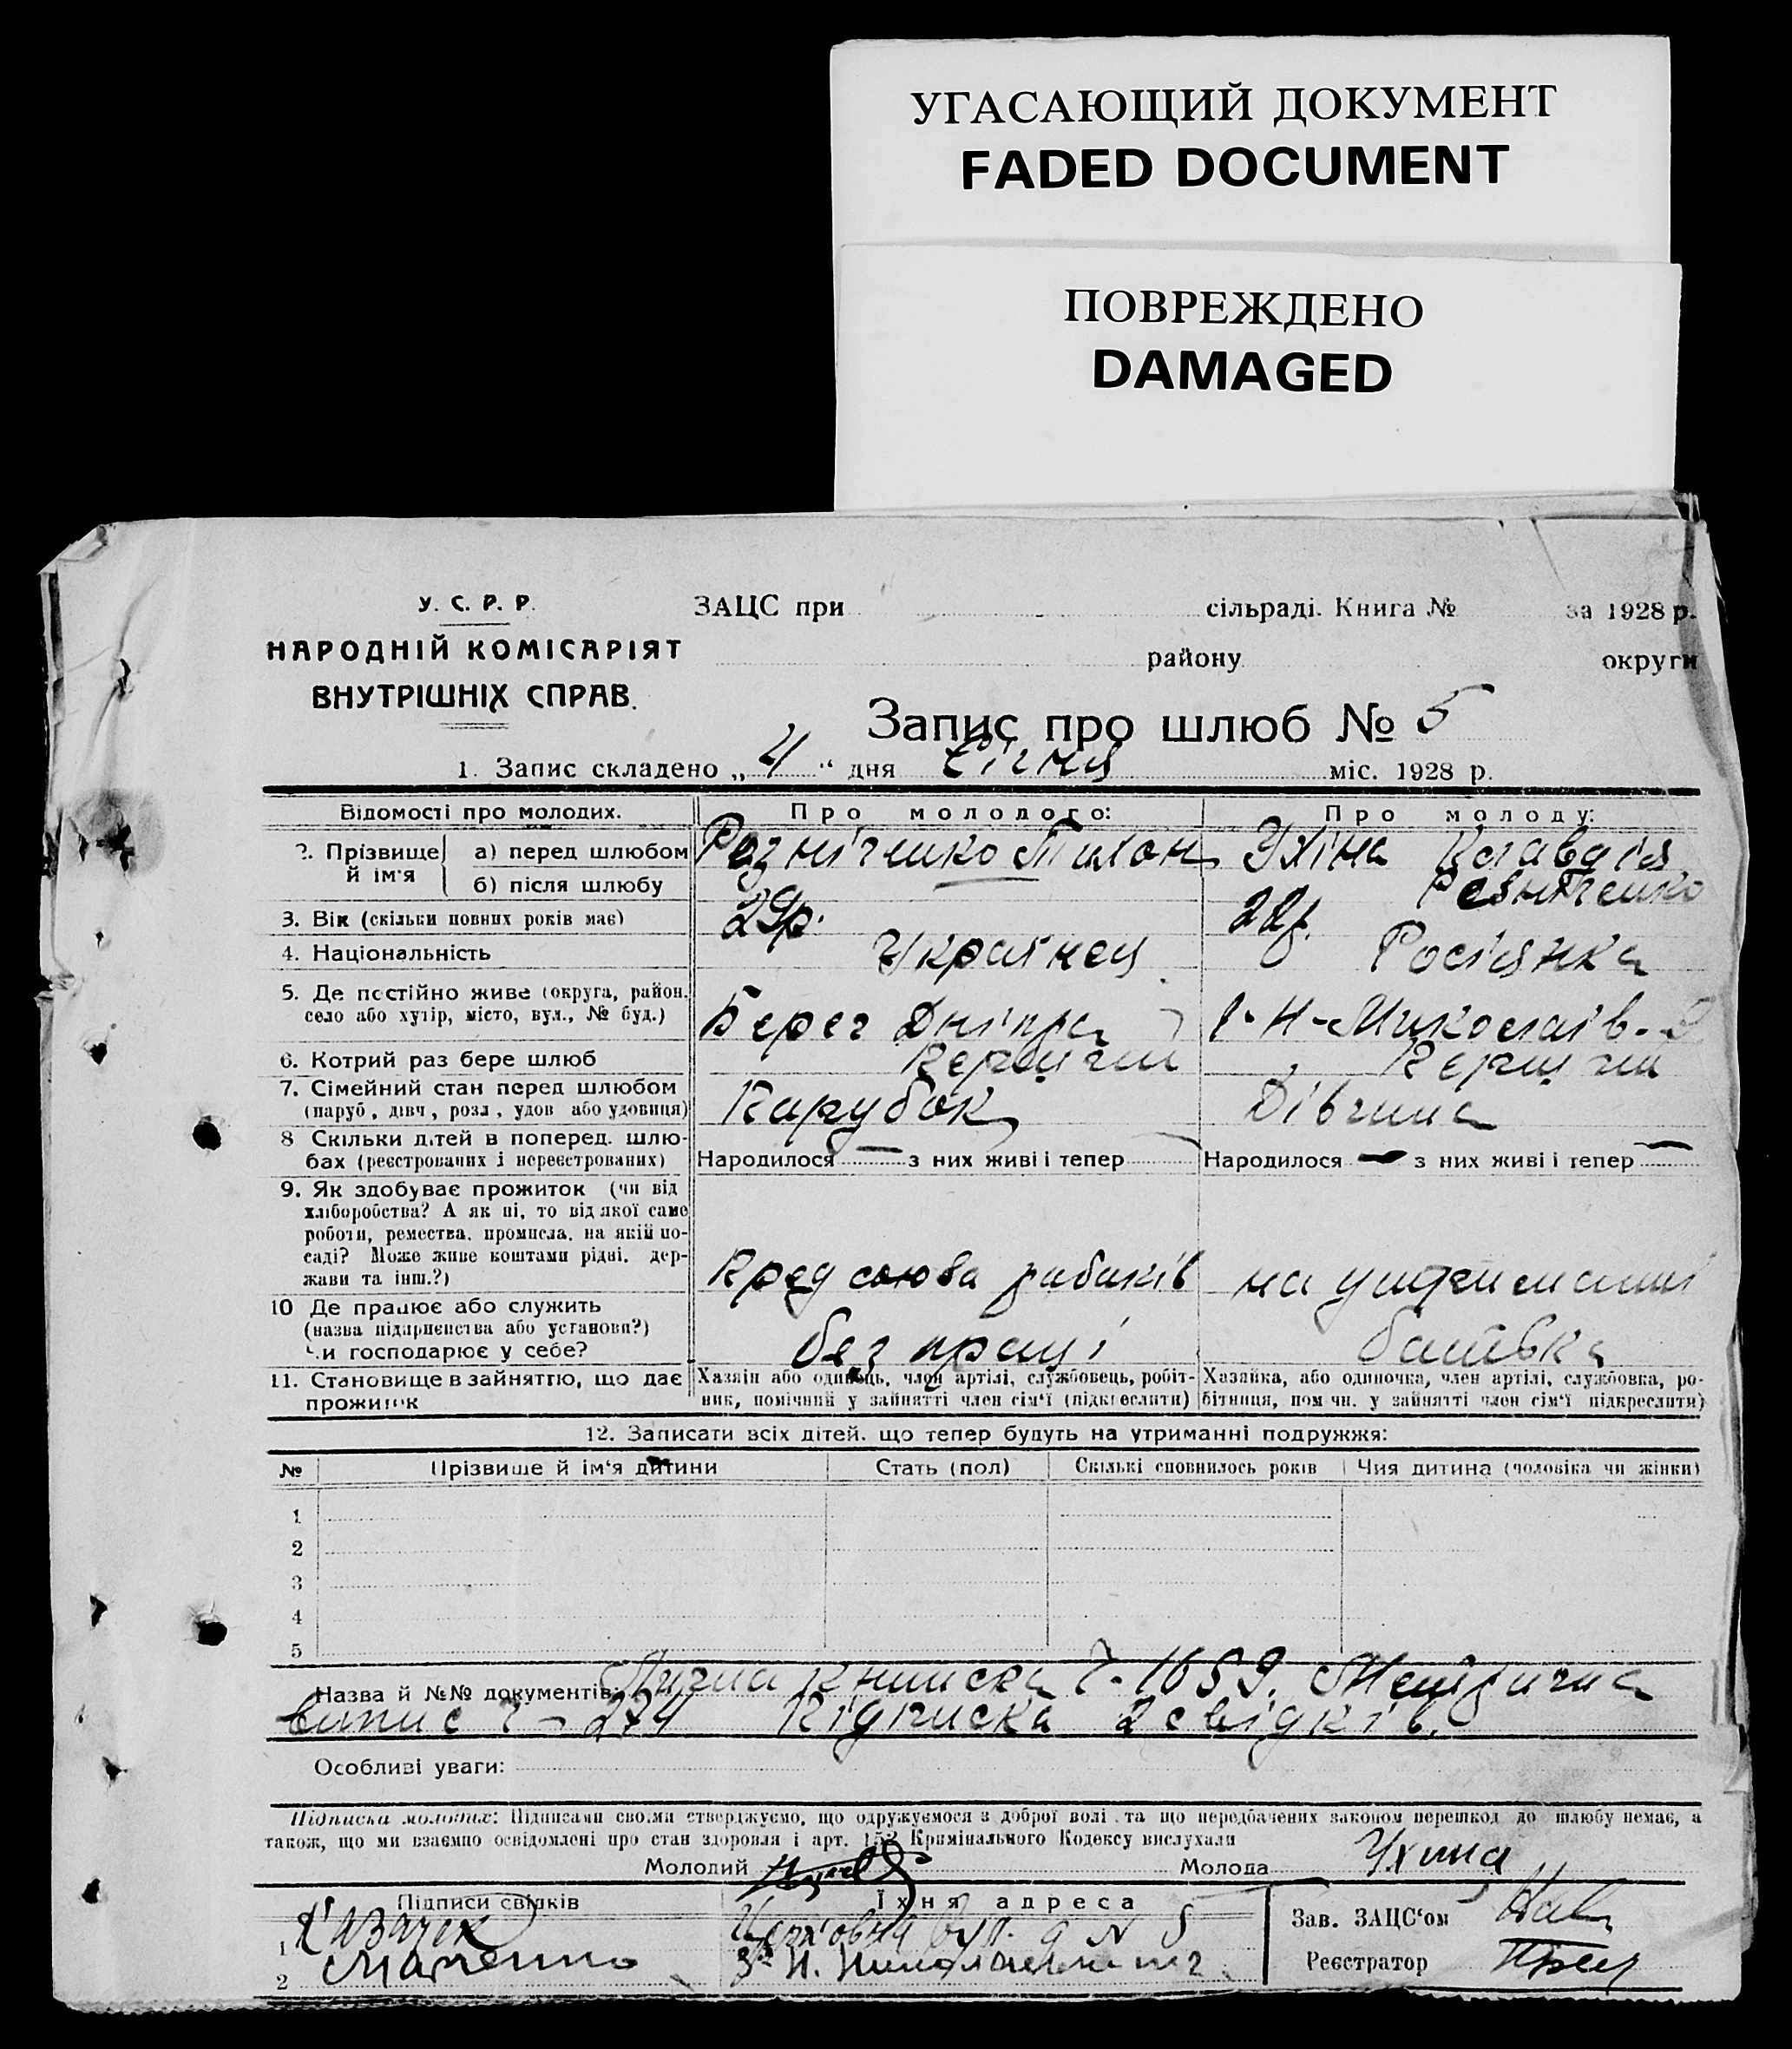 УГАСАЮЩИЙ ДОКУМЕНТ
FADED DOCUMENT
ПОВРЕЖДЕНО
DAMAGED
У. С. Р. Р.
НАРОДНІЙ КОМІСАРІЯТ
ВНУТРІШНІХ СПРАВ.
ЗАЦС при сільраді. Книга № за 1928 р.
району округи
Запис про шлюб № 5
1. Запис складено „4“ дня Січня міс. 1928 р.
Відомості про молодих. Про молодого: Про молоду:
2. Прізвище й ім'я
а) перед шлюбом Розніченко Тихон Ухіна Клавдія
б) після шлюбу
3. Вік (скільки повних років має) 29р. 22р.
4. Національність Українец Росіянка
5. Де постійно живе (округа, район, село або хутір, місто, вул., № буд.) Берег Дніпра 1-Н-Миколаїв.
6. Котрий раз бере шлюб Перший Перший
7. Сімейний стан перед шлюбом (паруб., дівч., розл., удов. або удовиця) Парубок Дівчина
8 Скільки дітей в поперед. шлюбах (реєстрованих і нереєстрованих) Народилося — з них живі і тепер — Народилося — з них живі і тепер —
9. Як здобуває прожиток (чи від
хліборобства? А як ні, то від якої саме
роботи, ремества, промисла, на якій по-
саді? Може живе коштами рідні, дер-
жави та інш.?)
Пред союза рибаків на утриманні
10 Де працює або служить
(назва підприємства або установи?)
Чи господарює у себе?
без праці батька
11. Становище в зайняттю, що дає
прожиток
Хазяїн або одинець, член артілі, службовець, робіт-
ник, помічний у зайнятті член сім'ї (підкреслити)
Хазяйка, або одиночка, член артілі, службовка, ро-
бітниця, помічн. у зайнятті член сім'ї підкреслити)
12. Записати всіх дітей, що тепер будуть на утриманні подружжя:
№ Прізвище й ім'я дитини Стать (пол) Скількі сповнилось років Чия дитина (чоловіка чи жінки)
1
2
3
4
5
Назва й №№ документів: Лична книжка Ч-1659. Метрична
випис ч-274 Підписка 2 свідків.
Особливі уваги:
Підписка молодих: Підписами своїми стверджуємо, що одружуємося з доброї волі та що передбачених законом перешкод до шлюбу немає, а
також, що ми взаємно освідомлені про стан здоровля і арт. 152 Кримінального Кодексу вислухали
Молодий Молода Ухина
Підписи свідків Їхня адреса
Зав. ЗАЦС'ом
1 Казачек
Реєстратор
2